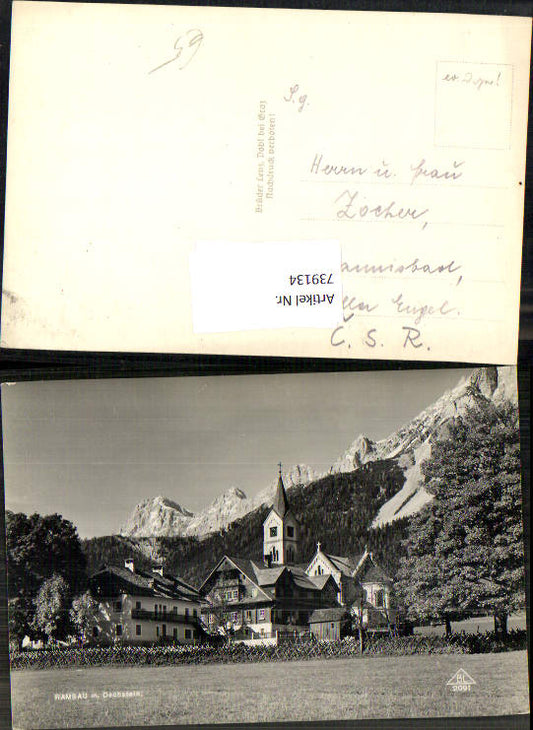 59
S.g.
Brüder Lenz, Dobl bei Graz
Nachdruck verboten!
Herrn u. Frau
Zocher,
annisbad,
Engel.
Č. S. R.
Artikel Nr.
739134
RAMSAU m. Dachstein.
BL
2091